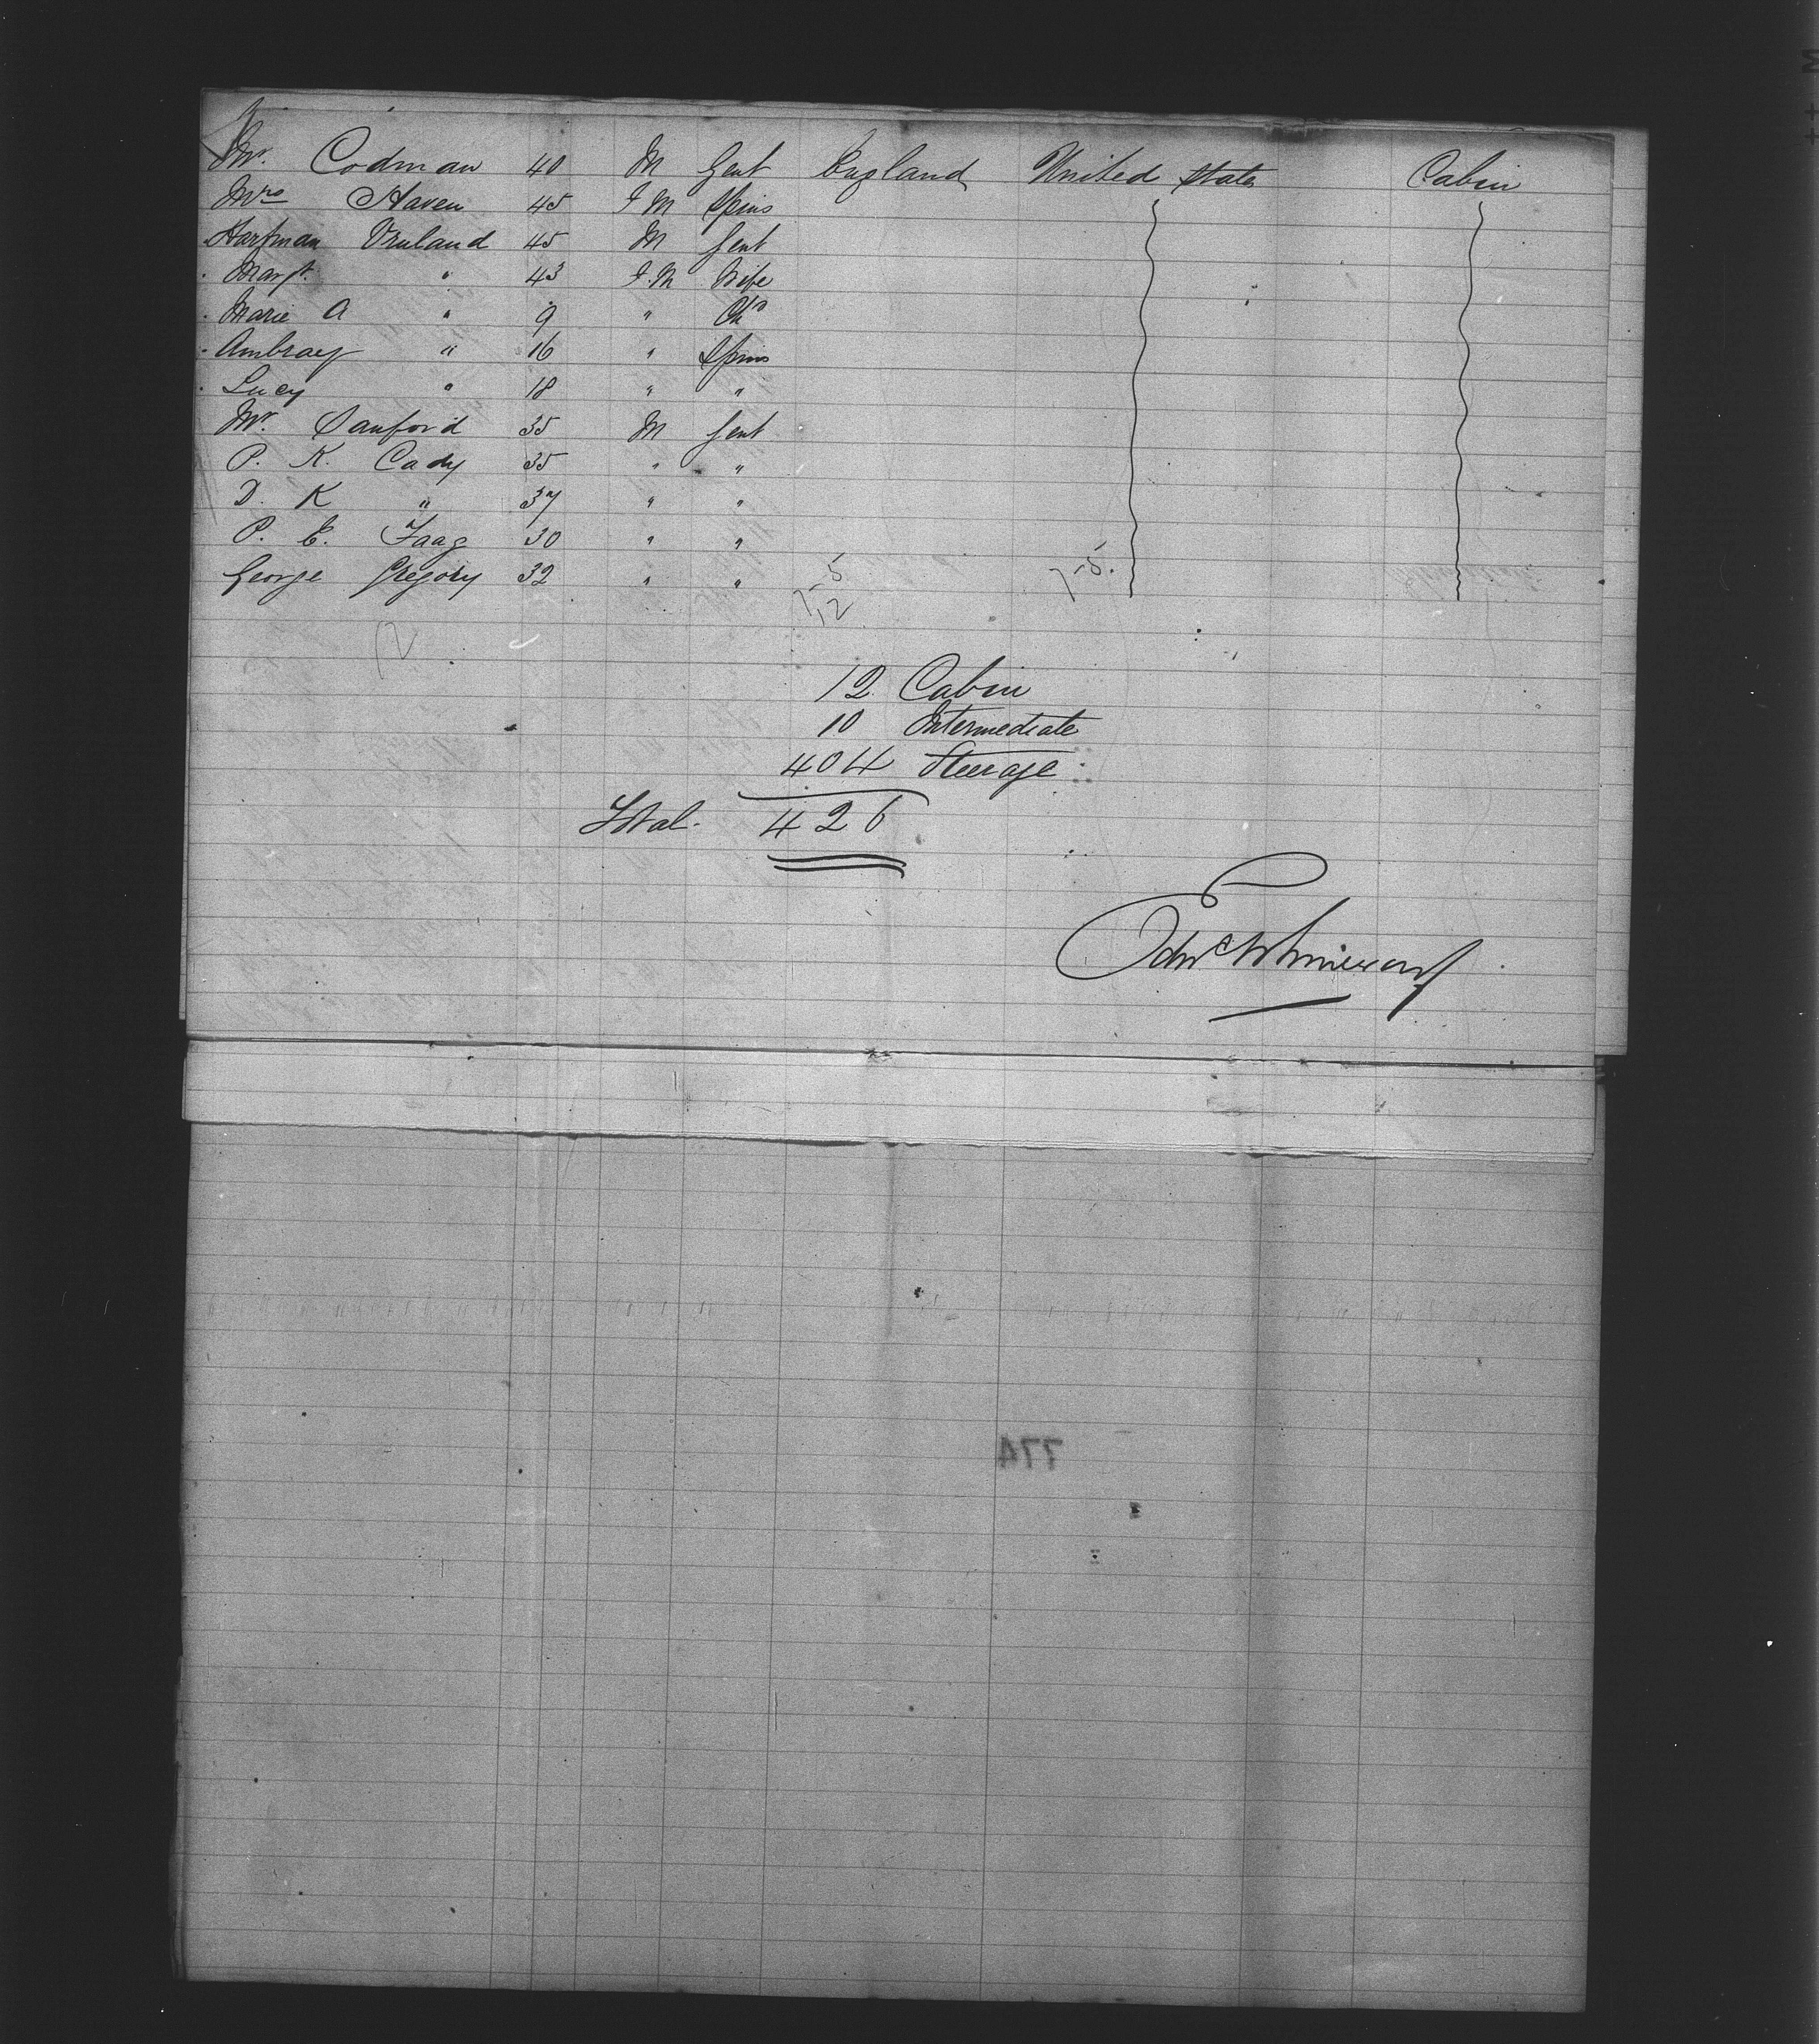 Mr. Codman 40 M Gent England United States Cabin
Mrs Haven 45 F M Spins
Hartman Vruland 45 M Gent
Margt. " 43 F.M Wife
Marie A " 9 " Chd
" 16 " Spins
Lucy " 18 " "
Mr. Sanford 35 M Gent
P. K. Cady 35 " "
D. K " 37 " "
P. E. 30 " "
George Gregory 32 " "
7-5 7-5.
12
12
12 Cabin
10 Intermediate
404 Steerage
Total. 426
774